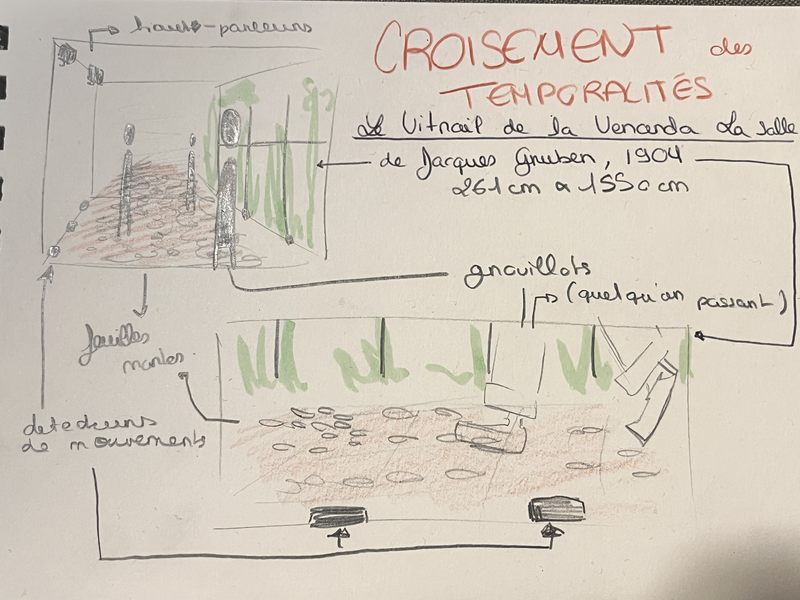 hauts-parleurs
CROISEMENT des
TEMPORALITÉS
Le Vitrail de la Veranda La Salle
de Jacques Gruber, 1904
261 cm a 1550 cm
grouillots
(quelqu'un passant)
feuilles
mortes
detecteurs
de mouvements